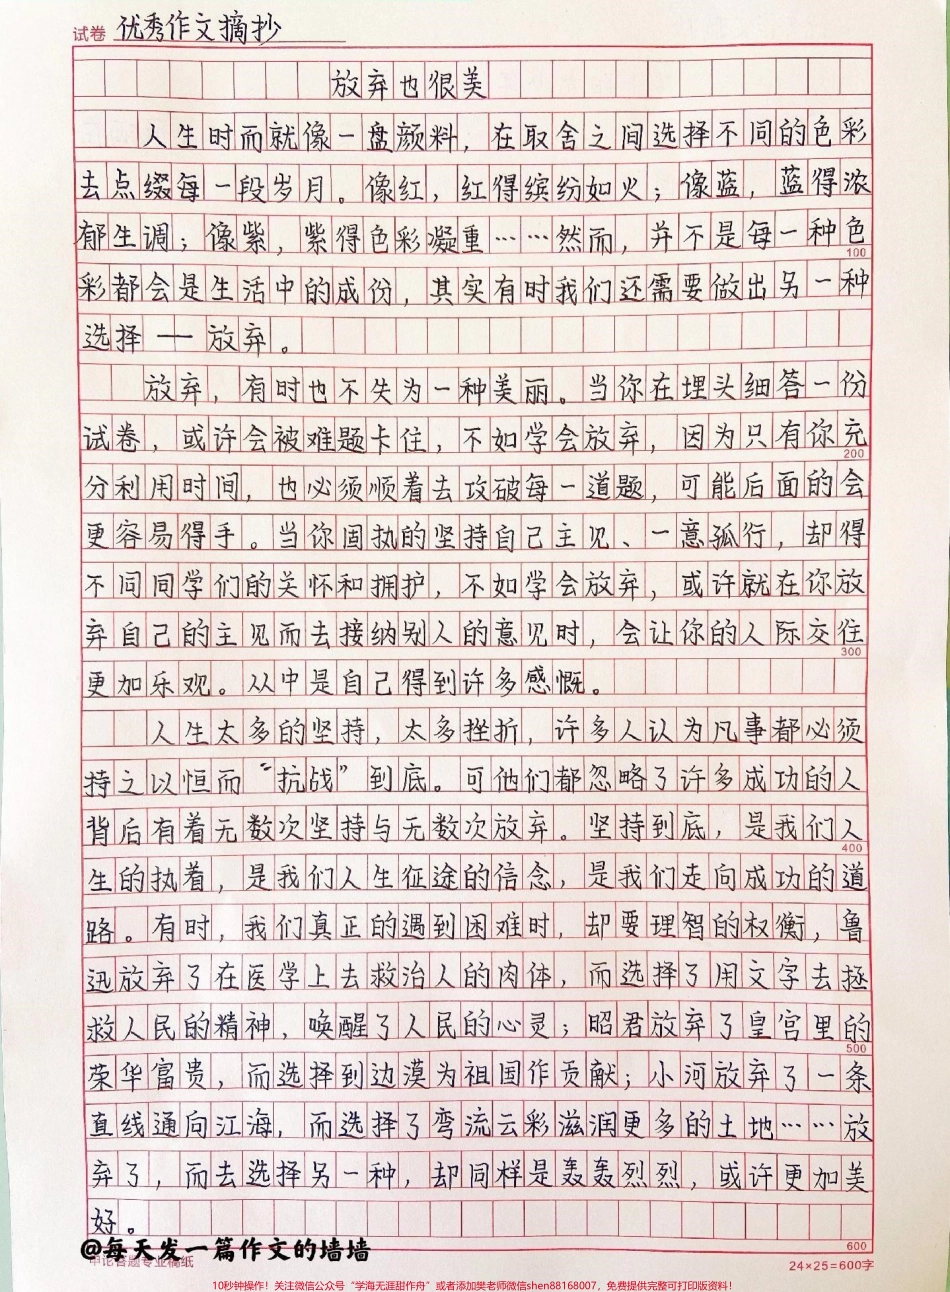 试卷 优秀作文摘抄
放弃也很美
人生时而就像一盘颜料，在取舍之间选择不同的色彩
去点缀每一段岁月。像红，红得缤纷如火；像蓝，蓝得浓
郁生调；像紫，紫得色彩凝重……然而，并不是每一种色
100
彩都会是生活中的成份，其实有时我们还需要做出另一种
选择——放弃。
放弃，有时也不失为一种美丽。当你在埋头细答一份
试卷，或许会被难题卡住，不如学会放弃，因为只有你充
200
分利用时间，也必须顺着去攻破每一道题，可能后面的会
更容易得手。当你固执的坚持自己主见、一意孤行，却得
不同同学们的关怀和拥护，不如学会放弃，或许就在你放
弃自己的主见而去接纳别人的意见时，会让你的人际交往
300
更加乐观。从中是自己得到许多感慨。
人生太多的坚持，太多挫折，许多人认为凡事都必须
持之以恒而“抗战”到底。可他们都忽略了许多成功的人
背后有着无数次坚持与无数次放弃。坚持到底，是我们人
400
生的执着，是我们人生征途的信念，是我们走向成功的道
路。有时，我们真正的遇到困难时，却要理智的权衡，鲁
迅放弃了在医学上去救治人的肉体，而选择了用文字去拯
救人民的精神，唤醒了人民的心灵；昭君放弃了皇宫里的
500
荣华富贵，而选择到边漠为祖国作贡献；小河放弃了一条
直线通向江海，而选择了弯流云彩滋润更多的土地……放
弃了，而去选择另一种，却同样是轰轰烈烈，或许更加美
好。
600
@每天发一篇作文的墙墙
申论答题专业稿纸
24×25=600字
10秒钟操作！关注微信公众号“学海无涯甜作舟”或者添加樊老师微信shen88168007，免费提供完整可打印版资料！